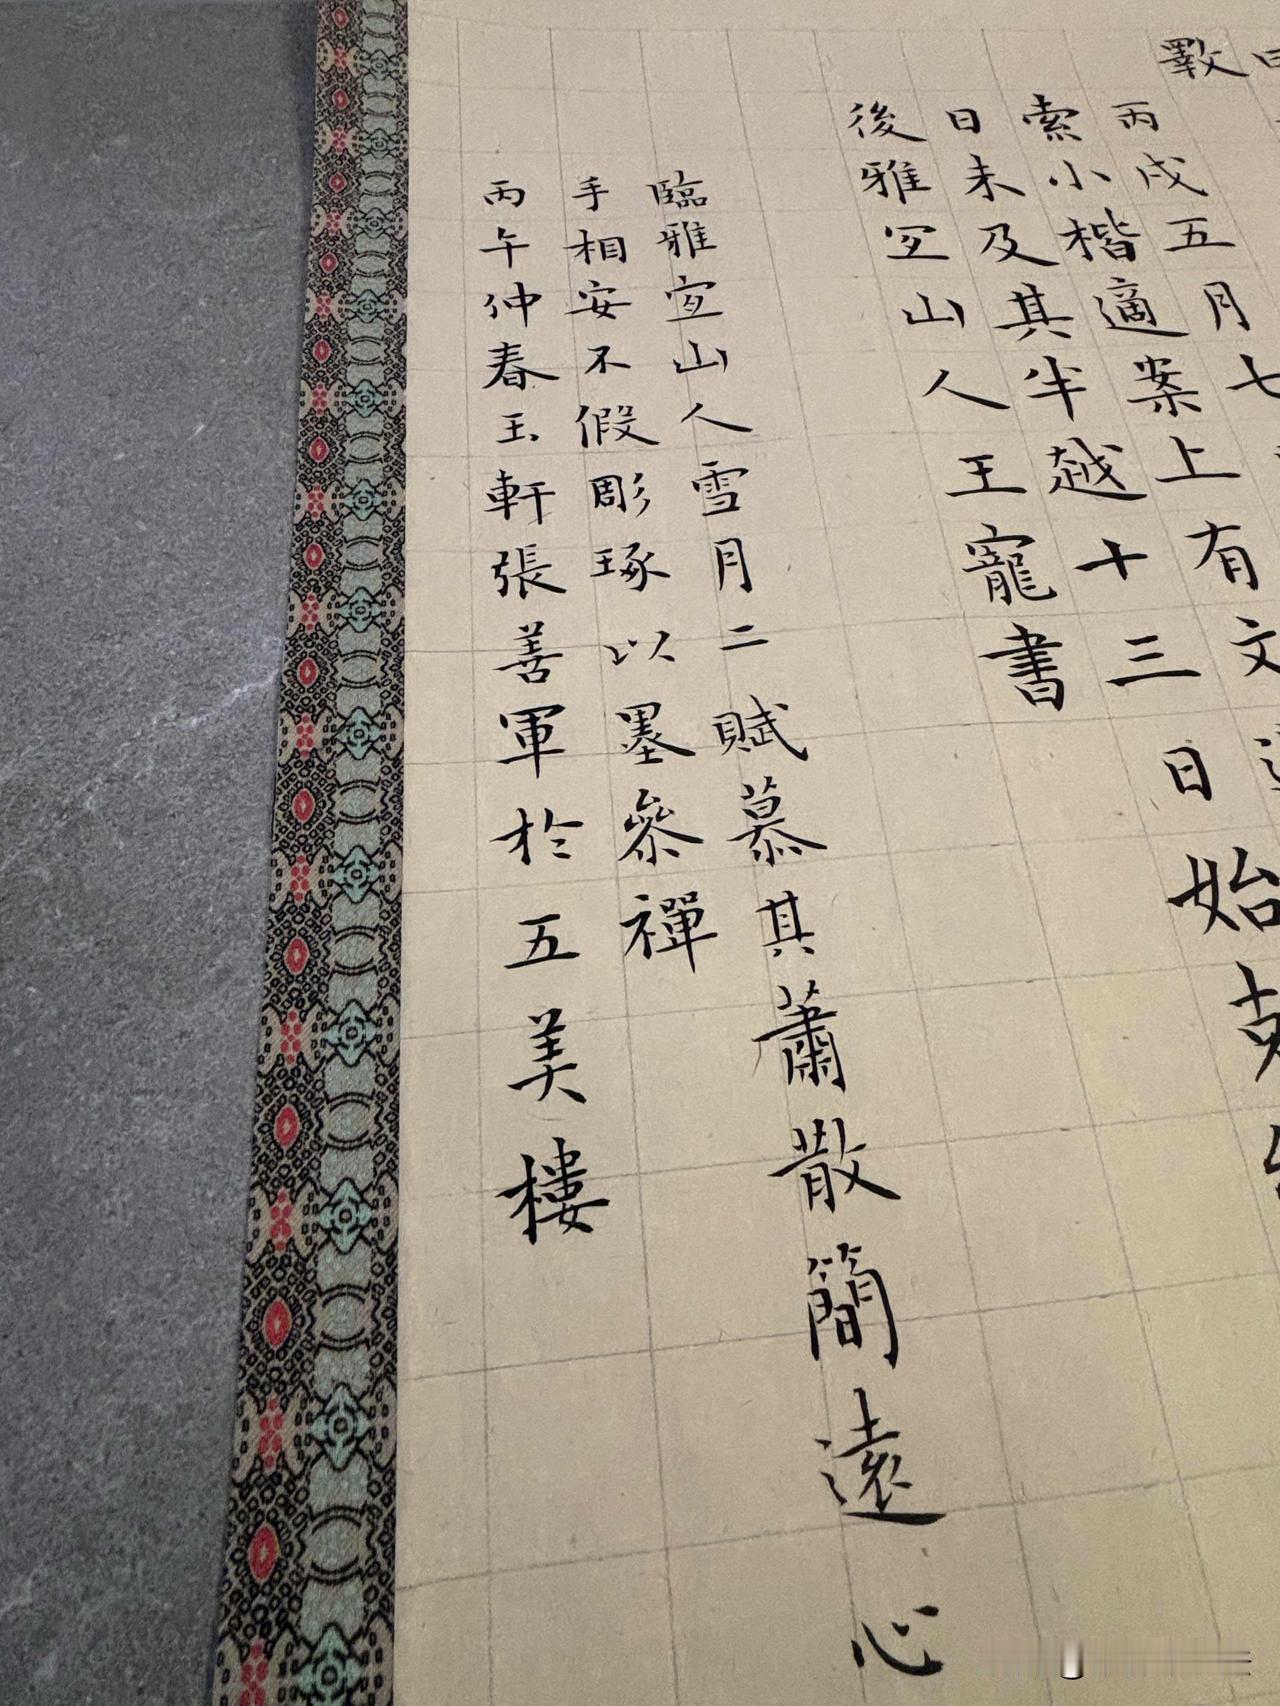 斁
丙戌五月七
索小楷適案上有文
日未及其半越十三日始
後雅宜山人王寵書
臨雅宜山人雪月二賦慕其蕭散簡遠心
手相安不假彫琢以墨參禪
丙午仲春玉軒張善軍於五美樓